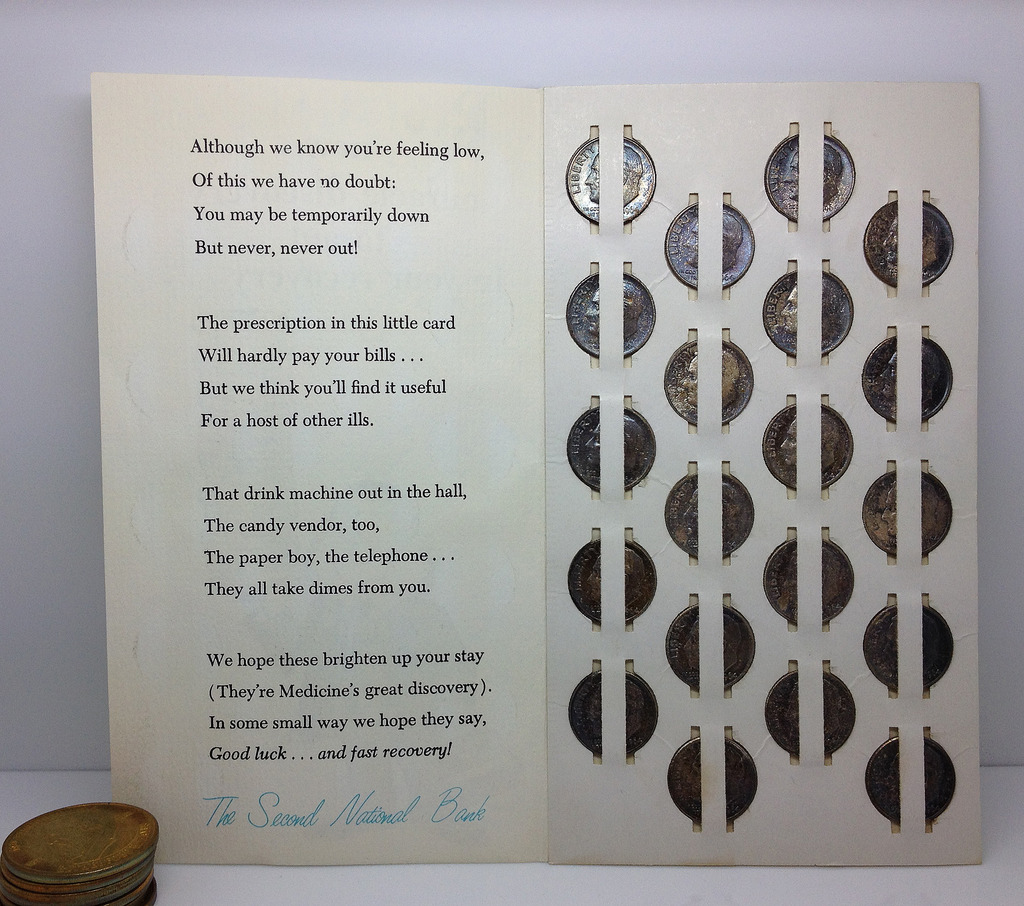 Although we know you're feeling low,
Of this we have no doubt:
You may be temporarily down
But never, never out!
The prescription in this little card
Will hardly pay your bills . . .
But we think you'll find it useful
For a host of other ills.
That drink machine out in the hall,
The candy vendor, too,
The paper boy, the telephone . . .
They all take dimes from you.
We hope these brighten up your stay
(They're Medicine's great discovery).
In some small way we hope they say,
Good luck . . . and fast recovery!
The Second National Bank
LIBERTY